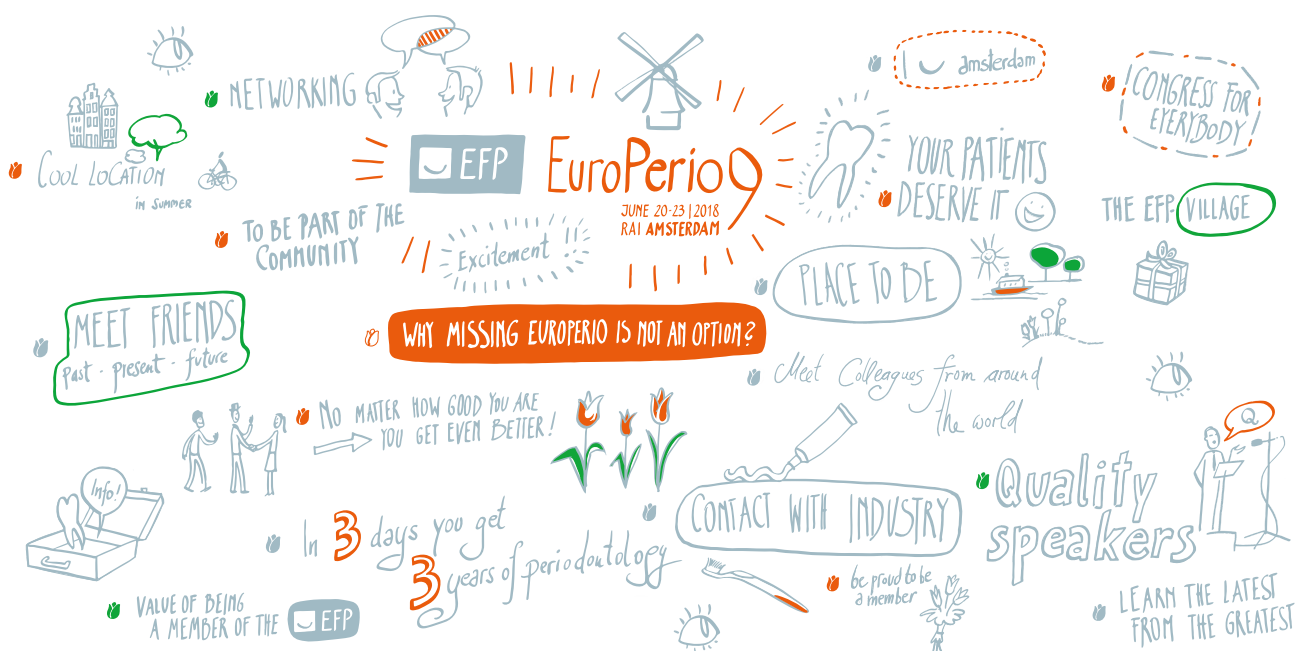 NETWORKING
COOL LOCATION
IN SUMMER
TO BE PART OF THE
COMMUNITY
EFP
EuroPerio9
JUNE 20-23 | 2018
RAI AMSTERDAM
Excitement !!
I amsterdam
CONGRESS FOR
EVERYBODY
YOUR PATIENTS
DESERVE IT
THE EFP-VILLAGE
PLACE TO BE
MEET FRIENDS
past - present - future
WHY MISSING EUROPERIO IS NOT AN OPTION?
Meet Colleagues from around
the world
NO MATTER HOW GOOD YOU ARE
YOU GET EVEN BETTER!
Q
Info!
In 3 days you get
3 years of periodontology
CONTACT WITH INDUSTRY
Quality
speakers
VALUE OF BEING
A MEMBER OF THE EFP
be proud to be
a member
LEARN THE LATEST
FROM THE GREATEST